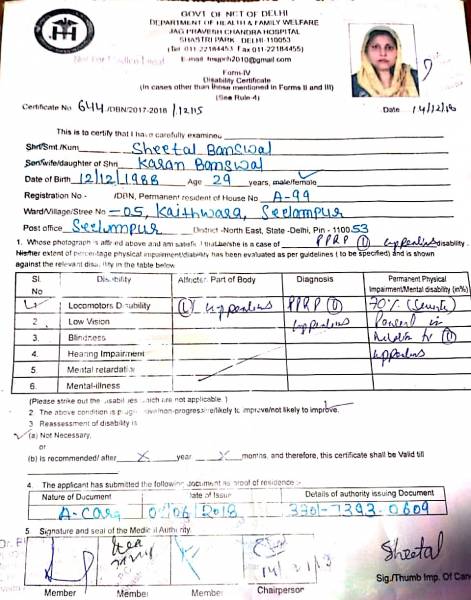 GOVT OF NCT OF DELHI
DEPARTMENT OF HEALTH & FAMILY WELFARE
JAG PRAVESH CHANDRA HOSPITAL
SHASTRI PARK DELHI-110053
(Tel 011-22184453 Fax 011-22184455)
E-mail
Form-IV
Disability Certificate
(In cases other than those mentioned in Forms II and III)
(See Rule-4)
Certificate No 644 /DBN/2017-2018 / 1215
Date 14/12/18
This is to certify that I have carefully examined
Shri/Smt./Kum Sheetal Banswal
Son/wife/daughter of Shri Karan Banswal
Date of Birth 12/12/1988 Age 29 years, male/female
Registration No - /DBN, Permanent resident of House No A-99
Ward/Village/Stree No -05, Kaithwara, Seelampur
Post office Seelampur District -North East, State -Delhi, Pin - 110053
1. Whose photograph is affixed above and am satisfied that he/she is a case of PPRP disability.
His/her extent of percentage physical impairment/disability has been evaluated as per guidelines ( to be specified) and is shown
against the relevant disability in the table below.
Sl. No Disability Affected Part of Body Diagnosis Permanent Physical Impairment/Mental disability (in%)
1. Locomotors Disability PPRP 70%
2. Low Vision
3. Blindness
4. Hearing Impairment
5. Mental retardation
6. Mental-illness
(Please strike out the disabilities which are not applicable.)
2 The above condition is progressive/non-progressive/likely to improve/not likely to improve.
3 Reassessment of disability is
(a) Not Necessary,
or
(b) Is recommended/ after X year X months, and therefore, this certificate shall be Valid till
4. The applicant has submitted the following document as proof of residence :-
Nature of Document Date of Issue Details of authority issuing Document
A-Card 2018
5 Signature and seal of the Medical Authority
Sheetal
Member Member Member Chairperson
Sig./Thumb Imp. Of Can